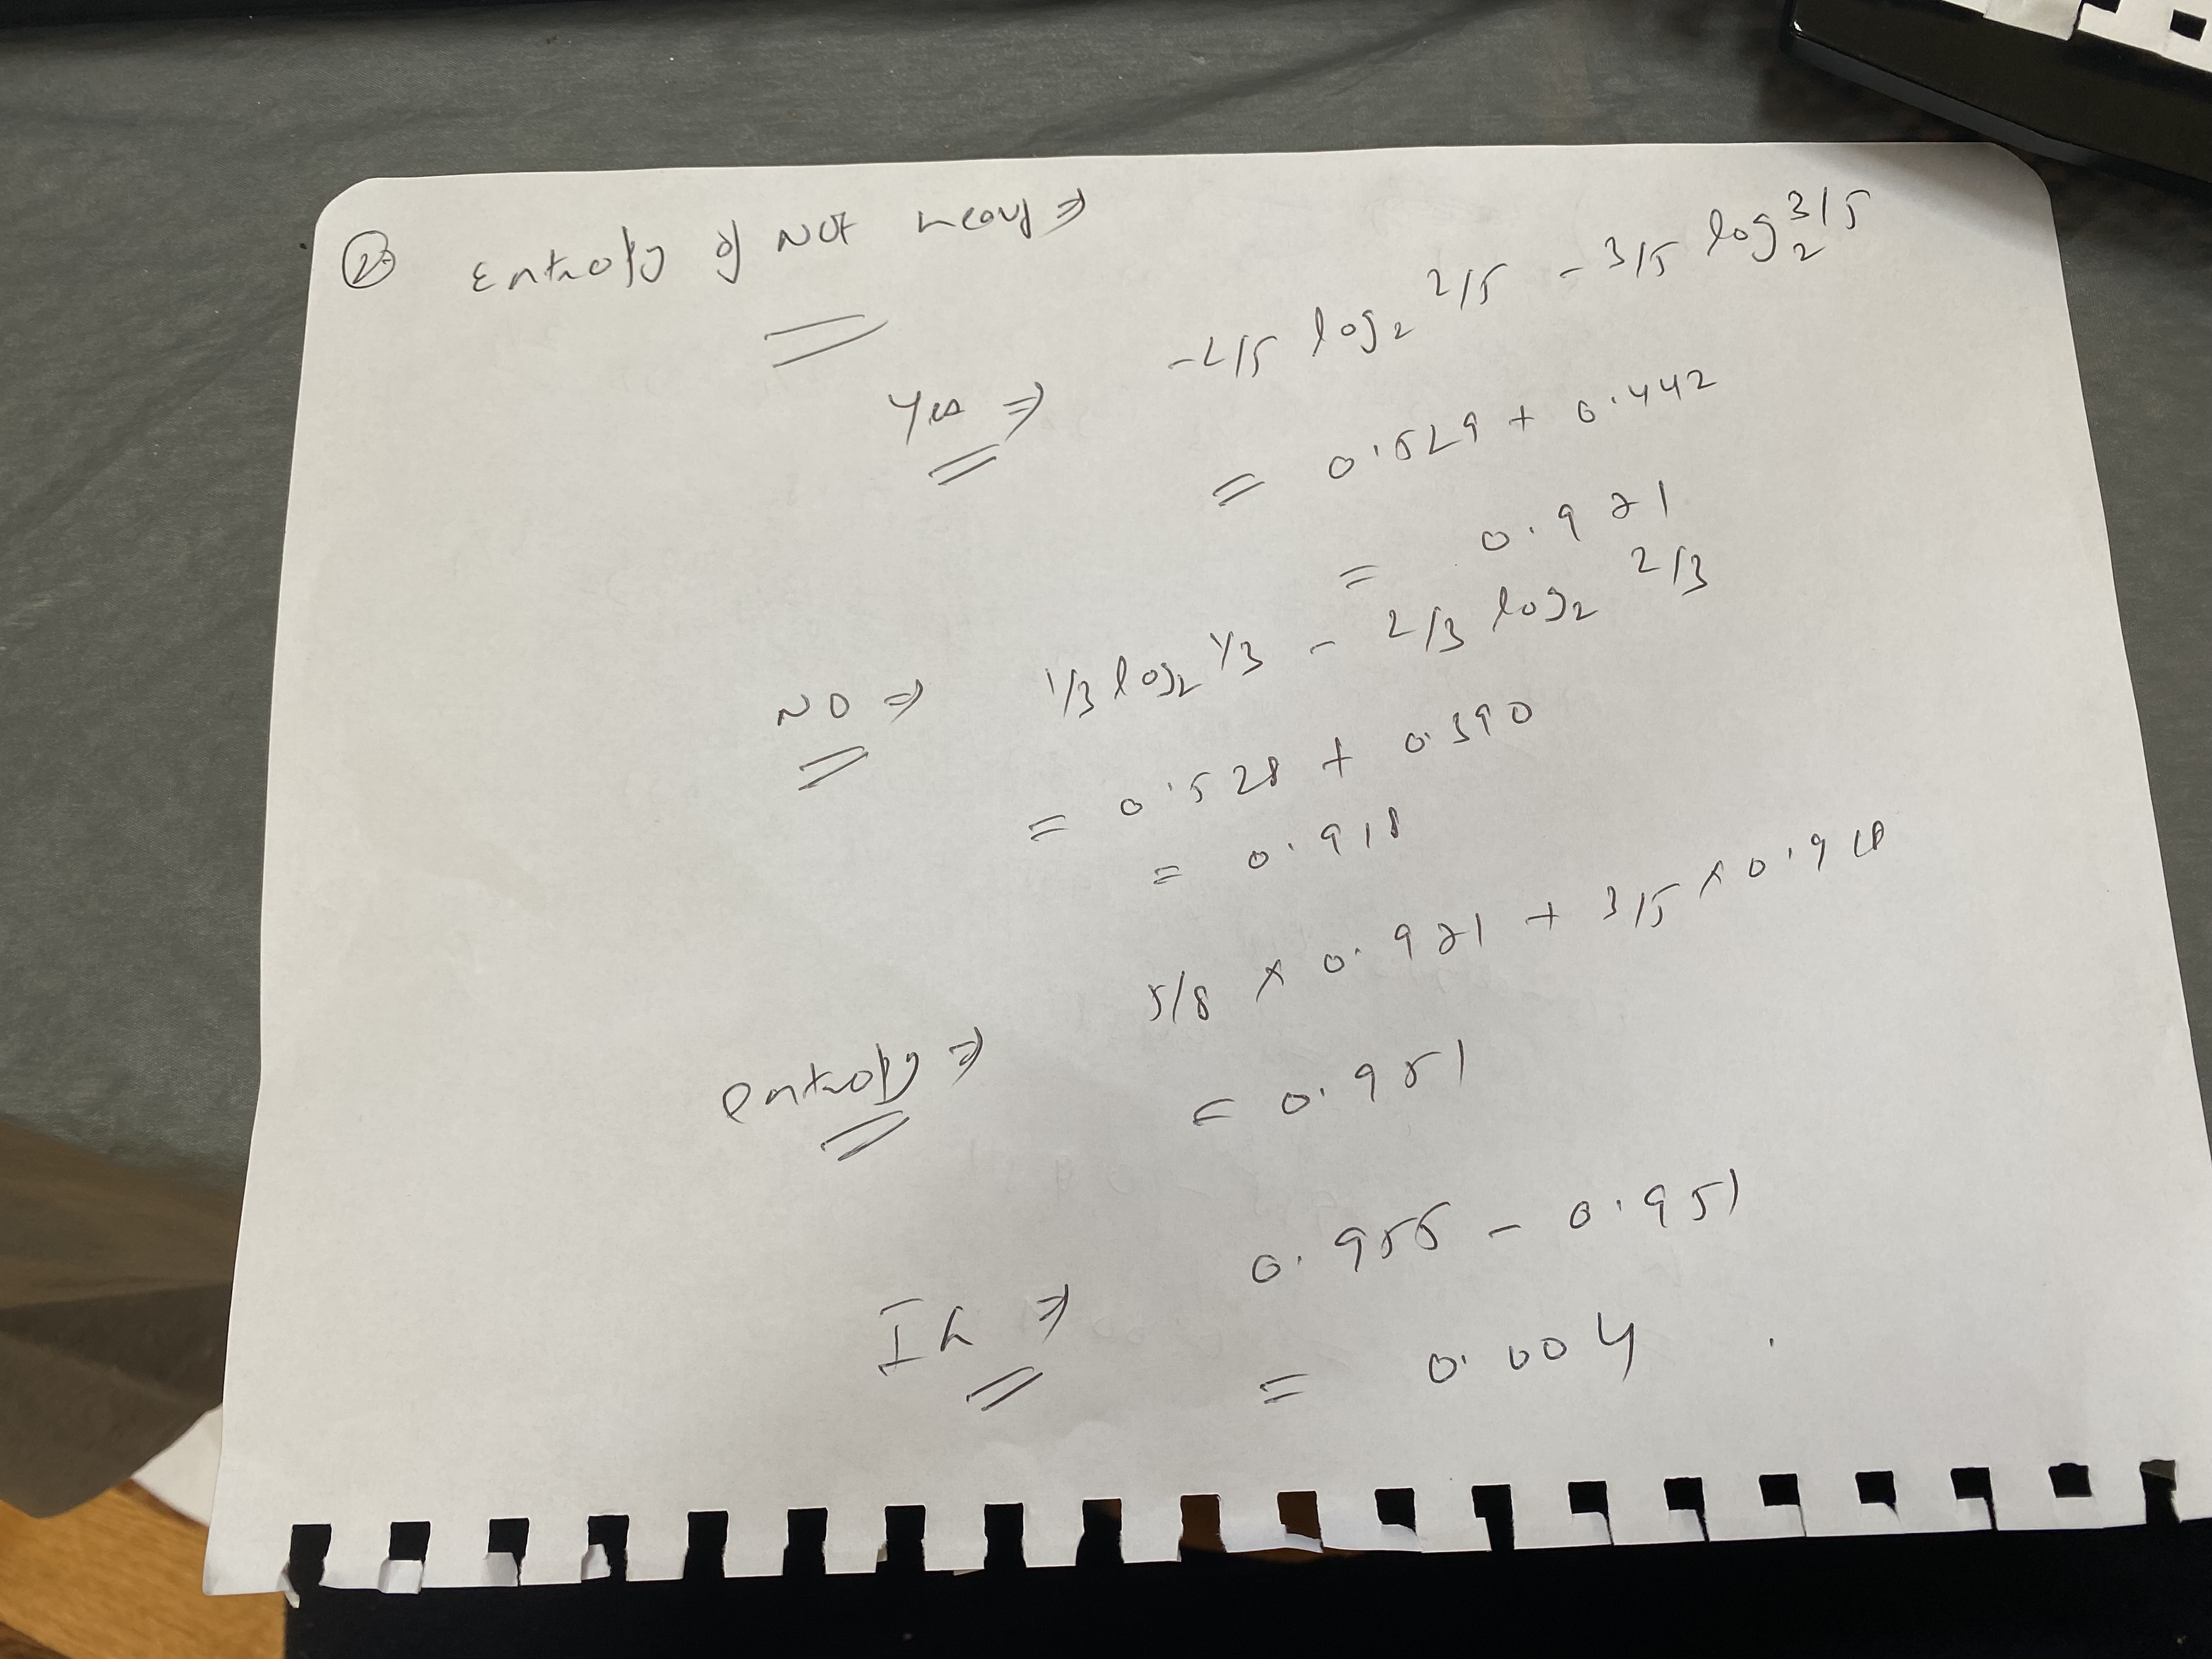 ② Entropy of Not heavy ⇒
Yes ⇒ -2/5 log₂ 2/5 - 3/5 log₂ 3/5
= 0.529 + 0.442
= 0.971
NO ⇒ 1/3 log₂ 1/3 - 2/3 log₂ 2/3
= 0.528 + 0.390
= 0.918
Entropy ⇒ 5/8 × 0.971 + 3/5 × 0.918
= 0.951
IG ⇒ 0.955 - 0.951
= 0.004